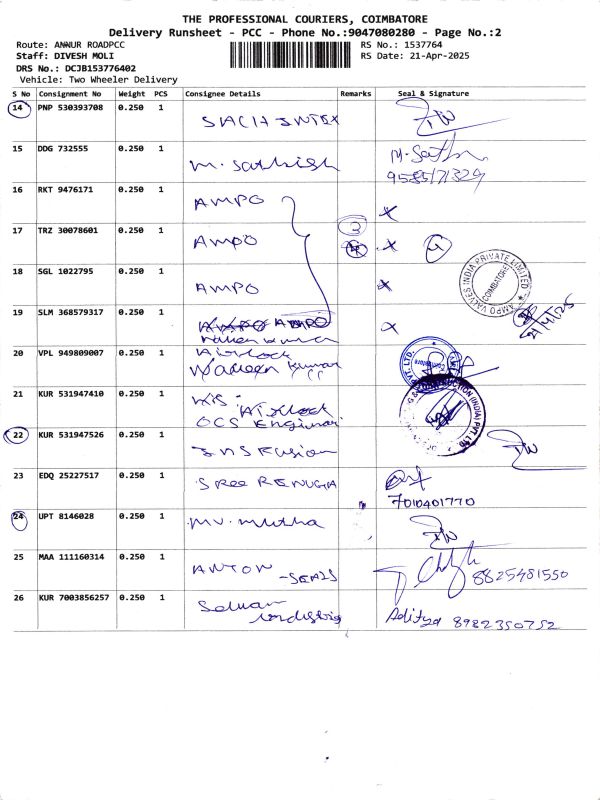 THE PROFESSIONAL COURIERS, COIMBATORE
Delivery Runsheet - PCC - Phone No.:9047080280 - Page No.:2
Route: ANNUR ROADPCC
RS No.: 1537764
Staff: DIVESH MOLI
RS Date: 21-Apr-2025
DRS No.: DCJB153776402
Vehicle: Two Wheeler Delivery
S No Consignment No Weight PCS Consignee Details Remarks Seal & Signature
14 PNP 530393708 0.250 1 SACH INTEX
15 DDG 732555 0.250 1 M. Sathish M. Sath
9585171329
16 RKT 9476171 0.250 1 AMPO
17 TRZ 30078601 0.250 1 AMPO 3 4
18 SGL 1022795 0.250 1 AMPO
AMPO VALVES INDIA PRIVATE LIMITED
COIMBATORE
21/4/25
19 SLM 368579317 0.250 1 AMPO
20 VPL 949809007 0.250 1 Airlock
Naveen Kumar
21 KUR 531947410 0.250 1 Airlock
OCS
(INDIA) PVT LTD
22 KUR 531947526 0.250 1 INS Fusion
23 EDQ 25227517 0.250 1 SREE RENUGA
7010401770
24 UPT 8146028 0.250 1 MV. Mutha
25 MAA 111160314 0.250 1 ANTON - SEALS 8825481550
26 KUR 7003856257 0.250 1 Selvan
Aditya 8982350752